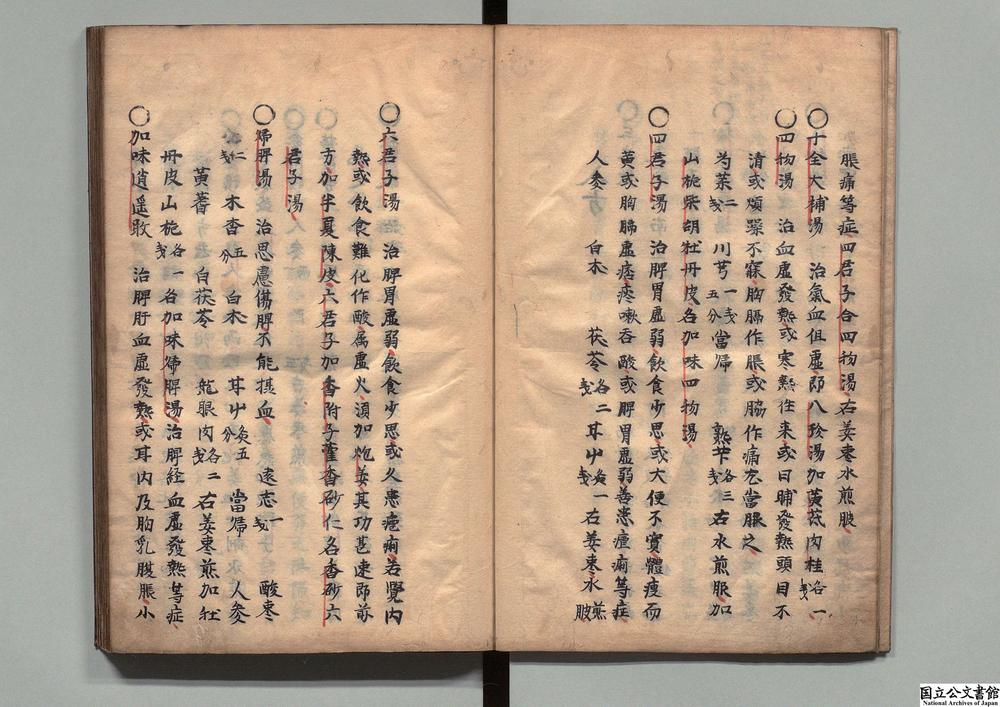 脹痛等症四君子合四物湯右姜枣水煎服
〇十全大補湯 治氣血俱虛即八珍湯加黃芪肉桂各一戔
〇四物湯 治血虛發熱或寒熱往来或日晡發熱頭目不
清或煩躁不寐胸膈作脹或脇作痛尤當服之
為茱二戔 川芎一戔五分 當帰 熟芐各三戔 右水煎服加
山梔柴胡牡丹皮名加味四物湯
〇四君子湯 治脾胃虛弱飲食少思或大便不實體瘦而
黃或胸膈虛痞疼嗽吞酸或脾胃虛弱善患瘧痢等症
人參 白朮 茯苓各二戔 甘草炙一戔 右姜枣水煎服
〇六君子湯 治脾胃虛弱飲食少思或久患瘧痢若覺内
熱或飲食難化作酸属虛火須加炮姜其功甚速即前
方加半夏陳皮六君子加香附子藿香砂仁名香砂六
君子湯
〇帰脾湯 治思慮傷脾不能摂血 遠志一戔 酸枣
仁戔 木香五分 白朮 甘草炙五分 當帰 人參
黃蓍 白茯苓 龍眼肉各二戔 右姜枣煎加牡
丹皮山梔各一戔名加味帰脾湯治脾経血虛發熱等症
〇加味逍遥散 治脾肝血虛發熱或耳内及胸乳腹脹小
国立公文書館
National Archives of Japan